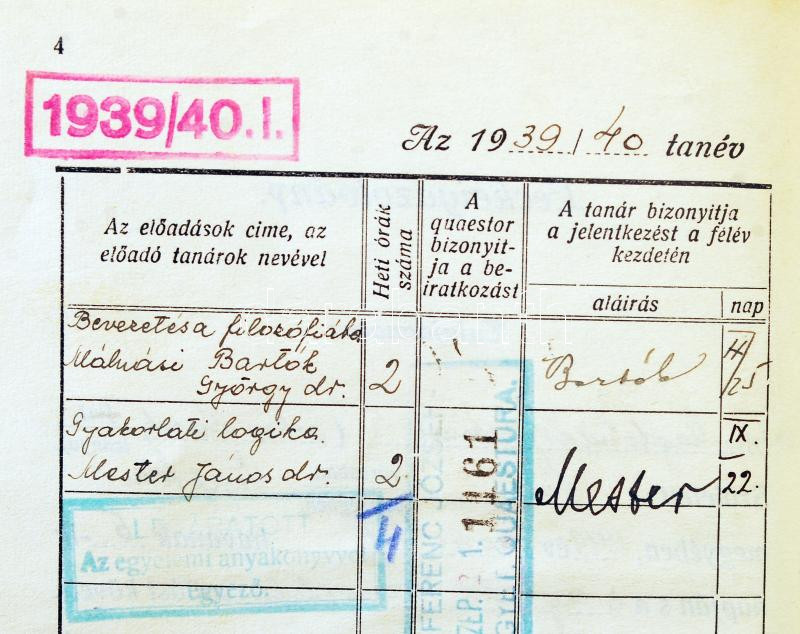 4
1939/40. I.
Az 1939/40 tanév
Az előadások cime, az
előadó tanárok nevével
Heti órák
száma
A
quaestor
bizonyit-
ja a be-
iratkozást
A tanár bizonyitja
a jelentkezést a félév
kezdetén
aláirás
nap
Bevezetés a filozófiába
Málnási Bartók
György dr.
2
Bartók
25
Gyakorlati logika.
Mester János dr.
2
Mester
IX.
22.
FERENC JÓZSEF
SZEP. 1.
1161
QUAESTURA.
Az egyetemi anyakönyvvel
egyező.